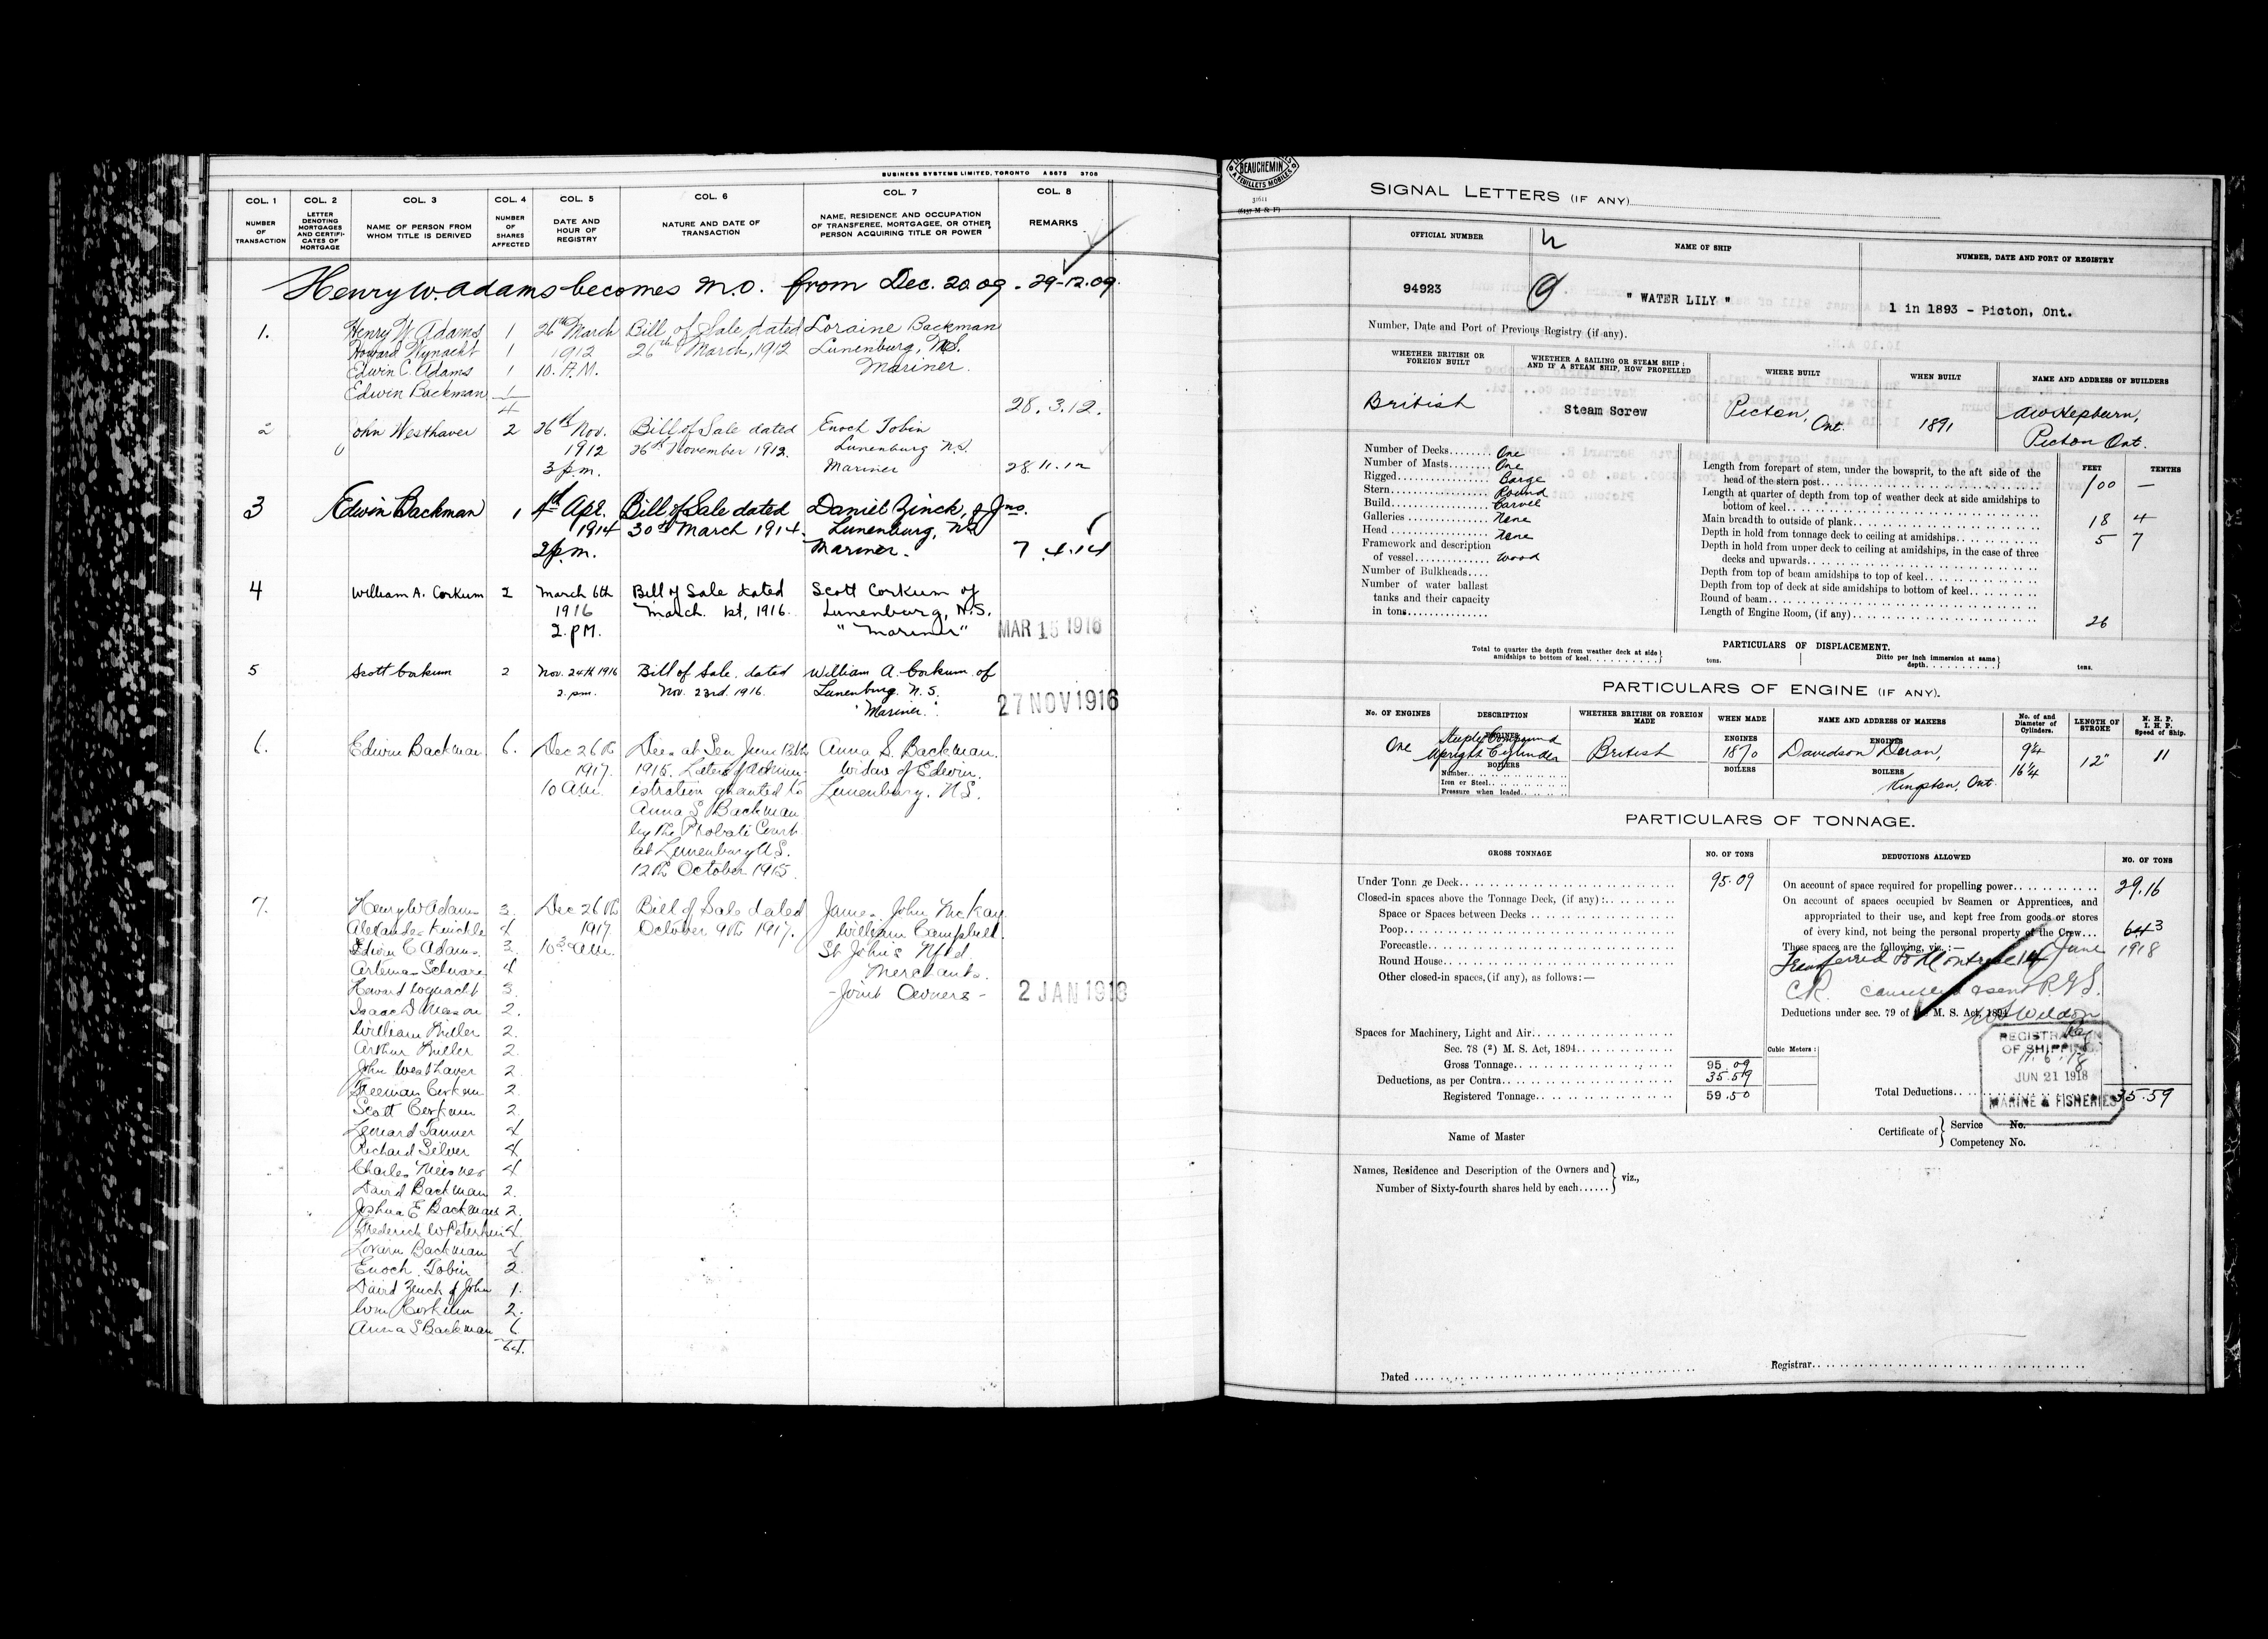 BUSINESS SYSTEMS LIMITED, TORONTO A5675 3708
COL. 1 COL. 2 COL. 3 COL. 4 COL. 5 COL. 6 COL. 7 COL. 8
NUMBER OF TRANSACTION
LETTER DENOTING MORTGAGES AND CERTIFICATES OF MORTGAGE
NAME OF PERSON FROM WHOM TITLE IS DERIVED
NUMBER OF SHARES AFFECTED
DATE AND HOUR OF REGISTRY
NATURE AND DATE OF TRANSACTION
NAME, RESIDENCE AND OCCUPATION OF TRANSFEREE, MORTGAGEE, OR OTHER PERSON ACQUIRING TITLE OR POWER
REMARKS
Henry W. Adams becomes M.O. from Dec. 20.09. 29-12.09.
1. Henry W. Adams 1 26th March Bill of Sale dated Loraine Backman
Howard Wynacht 1 1912 26th March, 1912 Lunenburg, N.S.
Edwin C. Adams 1 10. A.M. Mariner.
Edwin Backman 1
4 28.3.12.
2 John Westhaver 2 26th Nov. Bill of Sale dated Enoch Tobin
1912 26th November 1912. Lunenburg N.S.
3 p.m. Mariner 28.11.12
3 Edwin Backman 1 1st Apr. Bill of Sale dated Daniel Zinck, of Jno.
1914 30th March 1914. Lunenburg, NS
2 p.m. Mariner. 7.4.14
4 William A. Corkum 2 March 6th Bill of Sale dated Scott Corkum of
1916 March. 1st, 1916. Lunenburg, N.S.
2. PM. "Mariner" MAR 15 1916
5 Scott Corkum 2 Nov. 24th 1916 Bill of Sale. dated William A. Corkum of
2. pm. Nov. 23rd. 1916. Lunenburg. N.S.
"Mariner." 27 NOV 1916
6. Edwin Backman. 6. Dec 26th Died at Sea June 12th Anna S. Backman.
1917. 1915. Letters of Admin- Widow of Edwin.
10 a.m. istration granted to Lunenburg. N.S.
Anna S Backman
by the Probate Court
at Lunenburg N.S.
12th October 1915.
7. Henry W Adams 3. Dec 26th Bill of Sale dated James John McKay.
Alexander Knickle 4 1917 October 9th 1917. William Campbell.
Edwin C Adams 3. a.m. St. John's Nfld
Artemas Schnare 4 Merchants.
Howard Wynacht 3. -Joint Owners- 2 JAN 1918
Isaac D Mason 2.
William Miller 2.
Arthur Miller 2.
John Westhaver 2
Freeman Corkum 2.
Scott Corkum 2.
Leonard Tanner 4
Richard Silver 4
Charles Meisner 4
David Backman 2.
Joshua E Backman 2.
Frederick W 4.
Loraine Backman 4
Enoch Tobin 2.
David Zinck of John 1.
Wm Corkum 2.
Anna S Backman 6
64.
BEAUCHEMIN
A FEUILLETS MOBILES
31611
(6157 M & F)
SIGNAL LETTERS (IF ANY)
OFFICIAL NUMBER NAME OF SHIP NUMBER, DATE AND PORT OF REGISTRY
94923 " WATER LILY " 1 in 1893 - Picton, Ont.
Number, Date and Port of Previous Registry (if any).
WHETHER BRITISH OR FOREIGN BUILT
WHETHER A SAILING OR STEAM SHIP: AND IF A STEAM SHIP, HOW PROPELLED
WHERE BUILT
WHEN BUILT
NAME AND ADDRESS OF BUILDERS
British Steam Screw Picton, Ont. 1891 AW Hepburn, Picton Ont.
Number of Decks One
Number of Masts One
Rigged Barge
Stern Round
Build Carvel
Galleries None
Head None
Framework and description of vessel wood
Number of Bulkheads
Number of water ballast tanks and their capacity in tons
FEET TENTHS
Length from forepart of stem, under the bowsprit, to the aft side of the head of the stern post 100 —
Length at quarter of depth from top of weather deck at side amidships to bottom of keel
Main breadth to outside of plank 18 4
Depth in hold from tonnage deck to ceiling at amidships 5 7
Depth in hold from upper deck to ceiling at amidships, in the case of three decks and upwards
Depth from top of beam amidships to top of keel
Depth from top of deck at side amidships to bottom of keel
Round of beam
Length of Engine Room, (if any) 26
PARTICULARS OF DISPLACEMENT.
Total to quarter the depth from weather deck at side amidships to bottom of keel tons.
Ditto per inch immersion at same depth tens.
PARTICULARS OF ENGINE (IF ANY).
No. OF ENGINES DESCRIPTION WHETHER BRITISH OR FOREIGN MADE WHEN MADE NAME AND ADDRESS OF MAKERS No. of and Diameter of Cylinders. LENGTH OF STROKE N. H. P. I. H. P. Speed of Ship.
ENGINES ENGINES ENGINES
One Steeple Compound Upright Cylinder British 1870 Davidson Doran, 9¼ 16¼ 12" 11
BOILERS BOILERS BOILERS
Number
Iron or Steel
Pressure when loaded
Kingston, Ont.
PARTICULARS OF TONNAGE.
GROSS TONNAGE NO. OF TONS DEDUCTIONS ALLOWED NO. OF TONS
Under Tonnage Deck 95.09
Closed-in spaces above the Tonnage Deck, (if any):
Space or Spaces between Decks
Poop
Forecastle
Round House
Other closed-in spaces, (if any), as follows:—
Spaces for Machinery, Light and Air
Sec. 78 (2) M. S. Act, 1894
Gross Tonnage 95.09
Deductions, as per Contra 35.59
Registered Tonnage 59.50
Cubic Meters:
On account of space required for propelling power 29.16
On account of spaces occupied by Seamen or Apprentices, and appropriated to their use, and kept free from goods or stores of every kind, not being the personal property of the Crew 643
These spaces are the following, viz.:—
Transferred to Montreal 14 June 1918
CR. cancelled & sent R.G.S.
Deductions under sec. 79 of the M. S. Act, 1894
Weldon
REGISTRATION OF SHIPPING.
11.6.18
JUN 21 1918
MARINE & FISHERIES
Total Deductions 35.59
Name of Master
Certificate of Service No.
Competency No.
Names, Residence and Description of the Owners and Number of Sixty-fourth shares held by each viz.,
Dated
Registrar